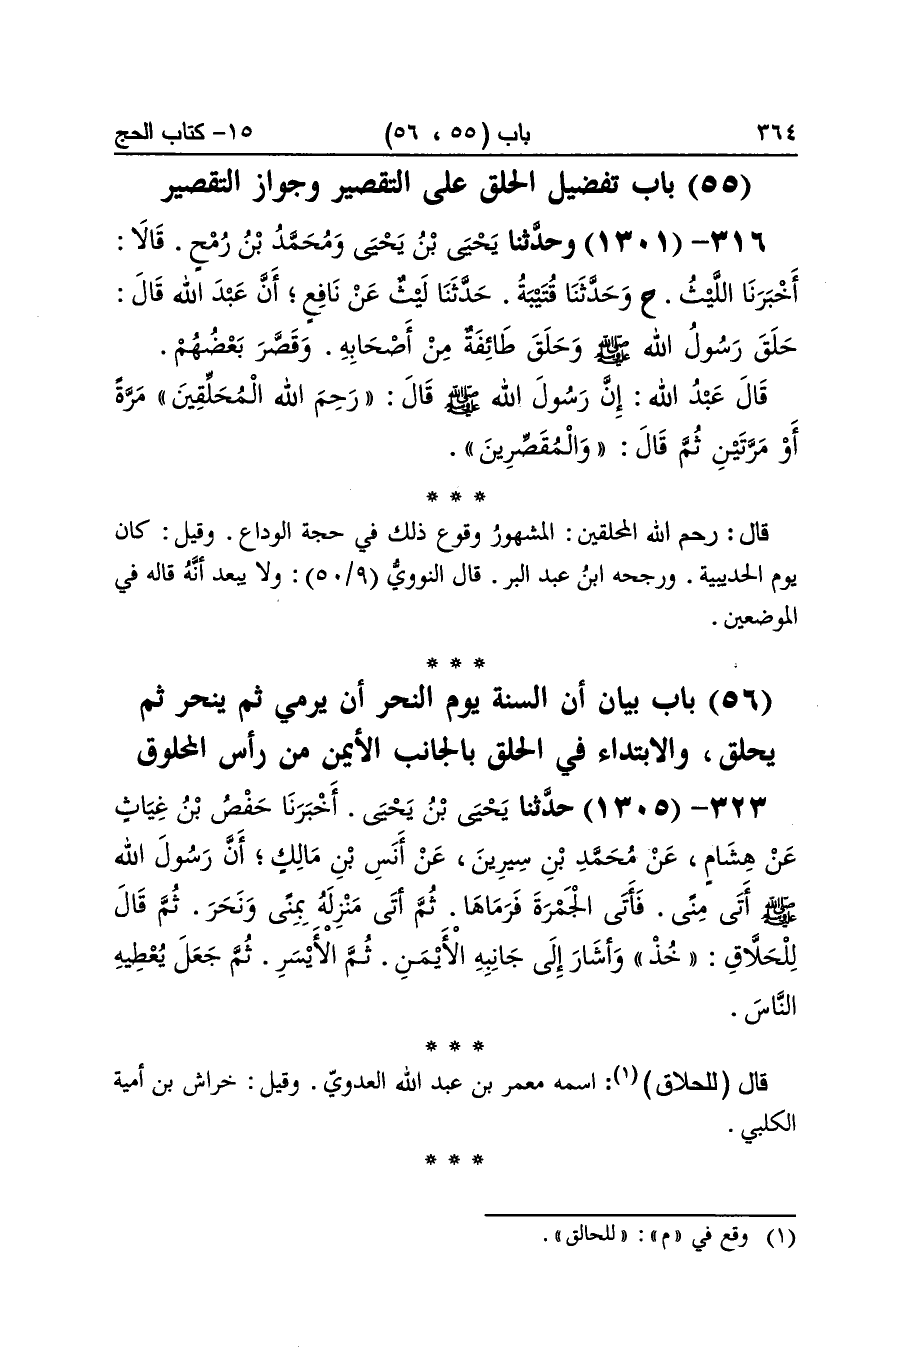 ٣٦٤ باب (٥٥ ، ٥٦) ١٥- كتاب الحج
(٥٥) باب تفضيل الحلق على التقصير وجواز التقصير
٣١٦- (١٣٠١) وحدَّثنا يَحْيَى بْنُ يَحْيَى وَمُحَمَّدُ بْنُ رُمْحٍ . قَالَا :
أَخْبَرَنَا اللَّيْثُ . ح وَحَدَّثَنَا قُتَيْبَةُ . حَدَّثَنَا لَيْثٌ عَنْ نَافِعٍ ؛ أَنَّ عَبْدَ الله قَالَ :
حَلَقَ رَسُولُ الله ﷺ وَحَلَقَ طَائِفَةٌ مِنْ أَصْحَابِهِ . وَقَصَّرَ بَعْضُهُمْ .
قَالَ عَبْدُ الله : إِنَّ رَسُولَ الله ﷺ قَالَ : « رَحِمَ الله الْمُحَلِّقِينَ » مَرَّةً
أَوْ مَرَّتَيْنِ ثُمَّ قَالَ : « وَالْمُقَصِّرِينَ » .
* * *
قال : رحم الله المحلقين : المشهورُ وقوع ذلك في حجة الوداع . وقيل : كان
يوم الحديبية . ورجحه ابنُ عبد البر . قال النوويُّ (٥٠/٩) : ولا يبعد أنَّهُ قاله في
الموضعين .
* * *
(٥٦) باب بيان أن السنة يوم النحر أن يرمي ثم ينحر ثم
يحلق ، والابتداء في الحلق بالجانب الأيمن من رأس المحلوق
٣٢٣- (١٣٠٥) حدَّثنا يَحْيَى بْنُ يَحْيَى . أَخْبَرَنَا حَفْصُ بْنُ غِيَاثٍ
عَنْ هِشَامٍ ، عَنْ مُحَمَّدِ بْنِ سِيرِينَ ، عَنْ أَنَسِ بْنِ مَالِكٍ ؛ أَنَّ رَسُولَ الله
ﷺ أَتَى مِنًى . فَأَتَى الْجَمْرَةَ فَرَمَاهَا . ثُمَّ أَتَى مَنْزِلَهُ بِمِنًى وَنَحَرَ . ثُمَّ قَالَ
لِلْحَلَّاقِ : « خُذْ » وَأَشَارَ إِلَى جَانِبِهِ الْأَيْمَنِ . ثُمَّ الْأَيْسَرِ . ثُمَّ جَعَلَ يُعْطِيهِ
النَّاسَ .
* * *
قال (للحلاق)(١) : اسمه معمر بن عبد الله العدويّ . وقيل : خراش بن أمية
الكلبي .
* * *
(١) وقع في «م» : «للحالق» .